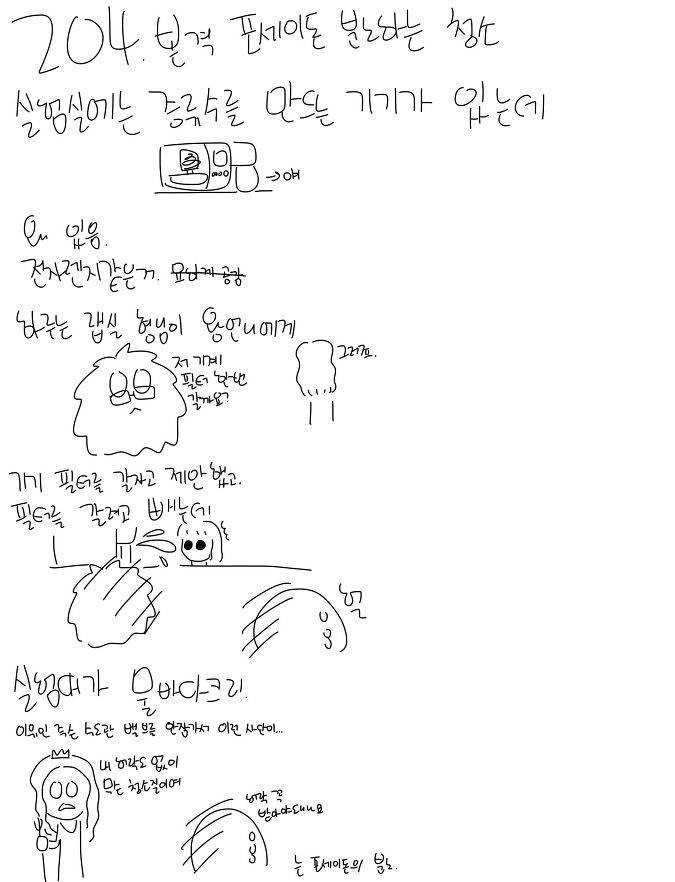 204. 본격 포세이돈 분노하는 청소
실험실에는 증류수를 만드는 기기가 있는데
→ 얘
왜 있음.
전자렌지같은거.
하루는 랩실 형님이 왕언니에게
저 기계
필터 한번
갈까요?
그러죠.
기기 필터를 갈자고 제안했고.
필터를 갈려고 빼는데
헐
실험대가 물바다크리.
이유인 즉슨 수도관 밸브를 안잠가서 이런 사단이...
내 허락도 없이
뭐하는 청소질이여
허락 꼭
받아야되나요
는 포세이돈의 분노.